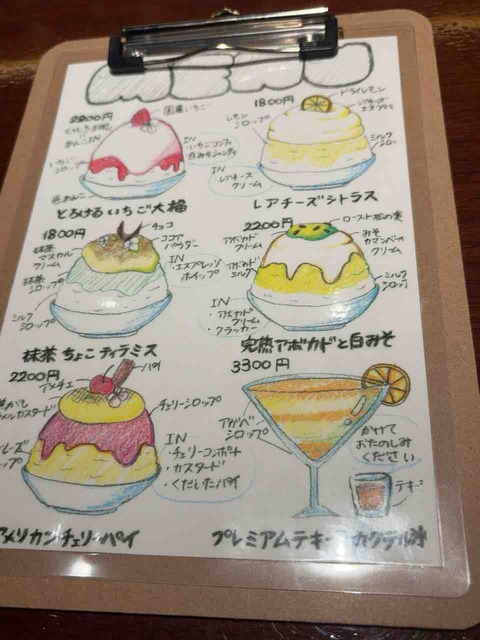 MENU
2200円
国産いちご
いちごシロップ
IN
・いちごコンフィ
・白みそシャンティ
とろける いちご大福
1800円
ドライレモン
レアチーズエスプーマ
レモンシロップ
ミルクシロップ
IN
・レアチーズクリーム
レアチーズシトラス
1800円
チョコ
ココアパウダー
抹茶マスカルクリーム
IN
・エスプレッソホイップ
抹茶シロップ
ミルクシロップ
抹茶ちょこティラミス
2200円
ロースト松の実
アボカドクリーム
みそカマンベールクリーム
アボカドミルク
ミルクシロップ
IN
・アボカドクリーム
・クラッカー
完熟アボカドと白みそ
2200円
アメチェ
パイ
チェリーシロップ
IN
・チェリーコンポート
・カスタード
・くだいたパイ
アメリカンチェリーパイ
3300円
アガベシロップ
かけて
おたのしみ
ください
テキ
プレミアムテキーラカクテル氷